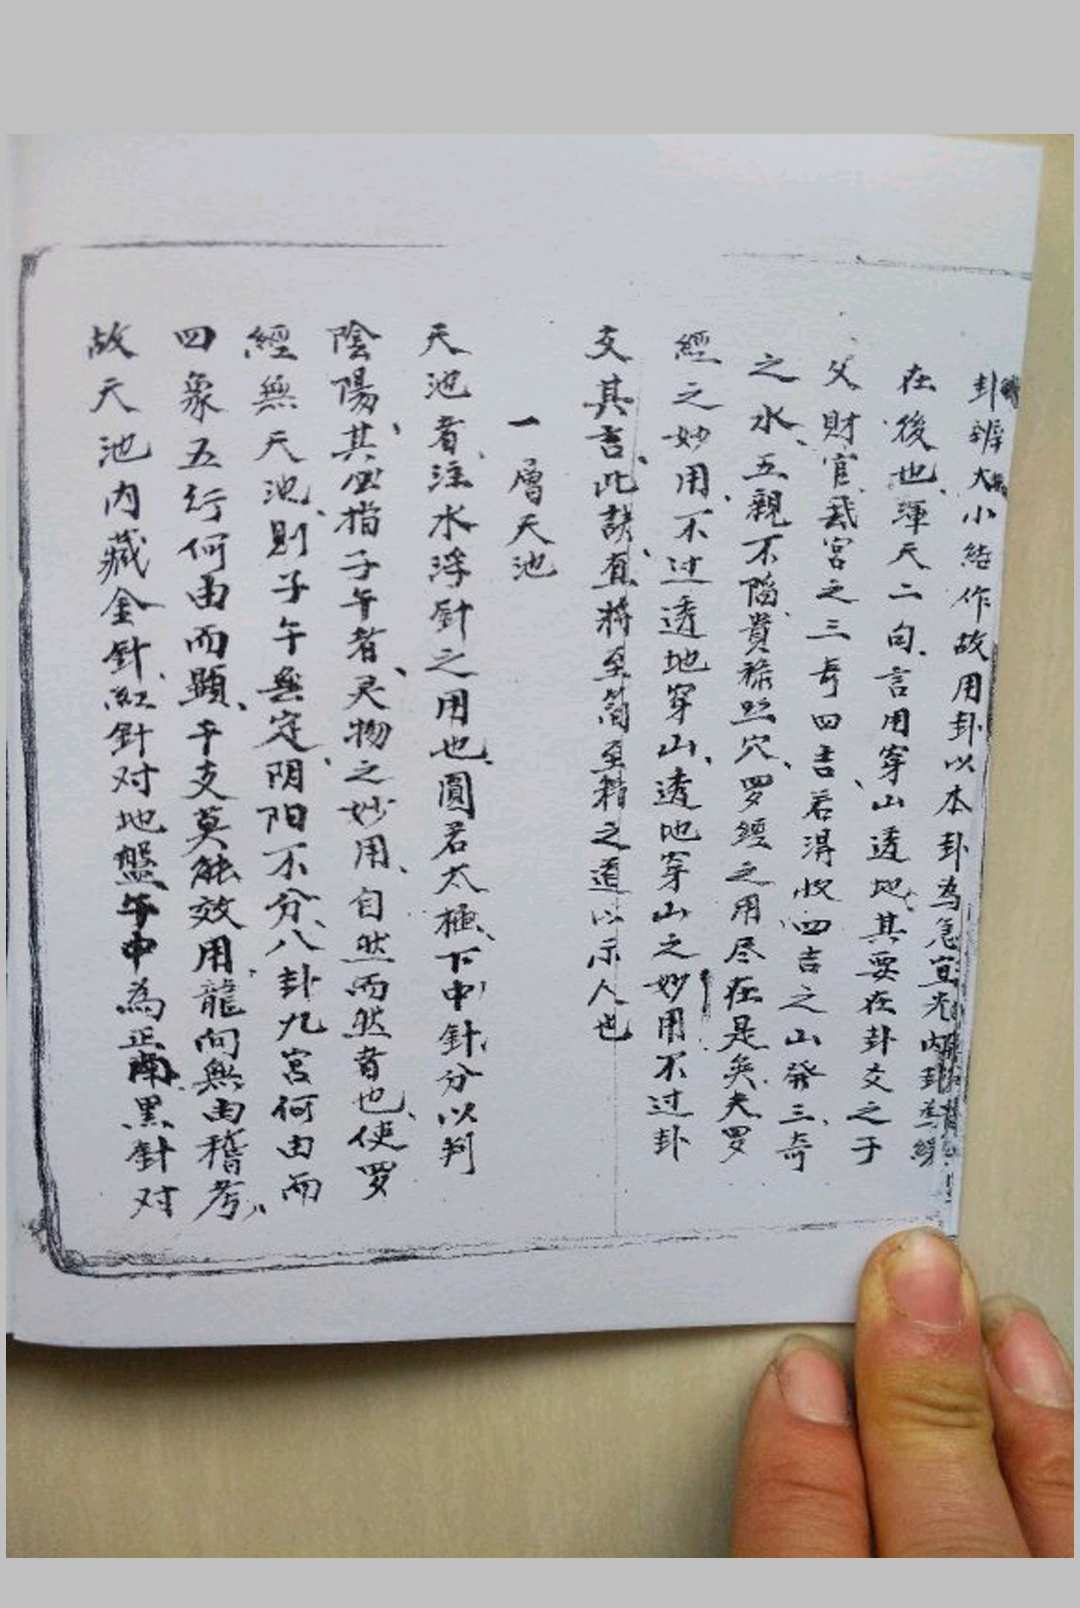 卦辨大小結作故用卦以本卦為急宜先內卦為
在後也渾天二句言用穿山透地其要在卦爻之子
父財官我宮之三奇四吉若得收四吉之山發三奇
之水五親不陷貴祿照穴罗經之用尽在是矣夫罗
經之妙用不过透地穿山透地穿山之妙用不过卦
爻其吉此訣直將至简至精之道以示人也
一層天池
天池者注水浮針之用也圓若太極下中針分以判
陰陽其必指子午者灵物之妙用自然而然者也使罗
經無天池則子午無定阴阳不分八卦九宮何由而
四象五行何由而顯干支莫能效用龍向無由稽考
故天池內藏金針紅針对地盤午中為正南黑針对